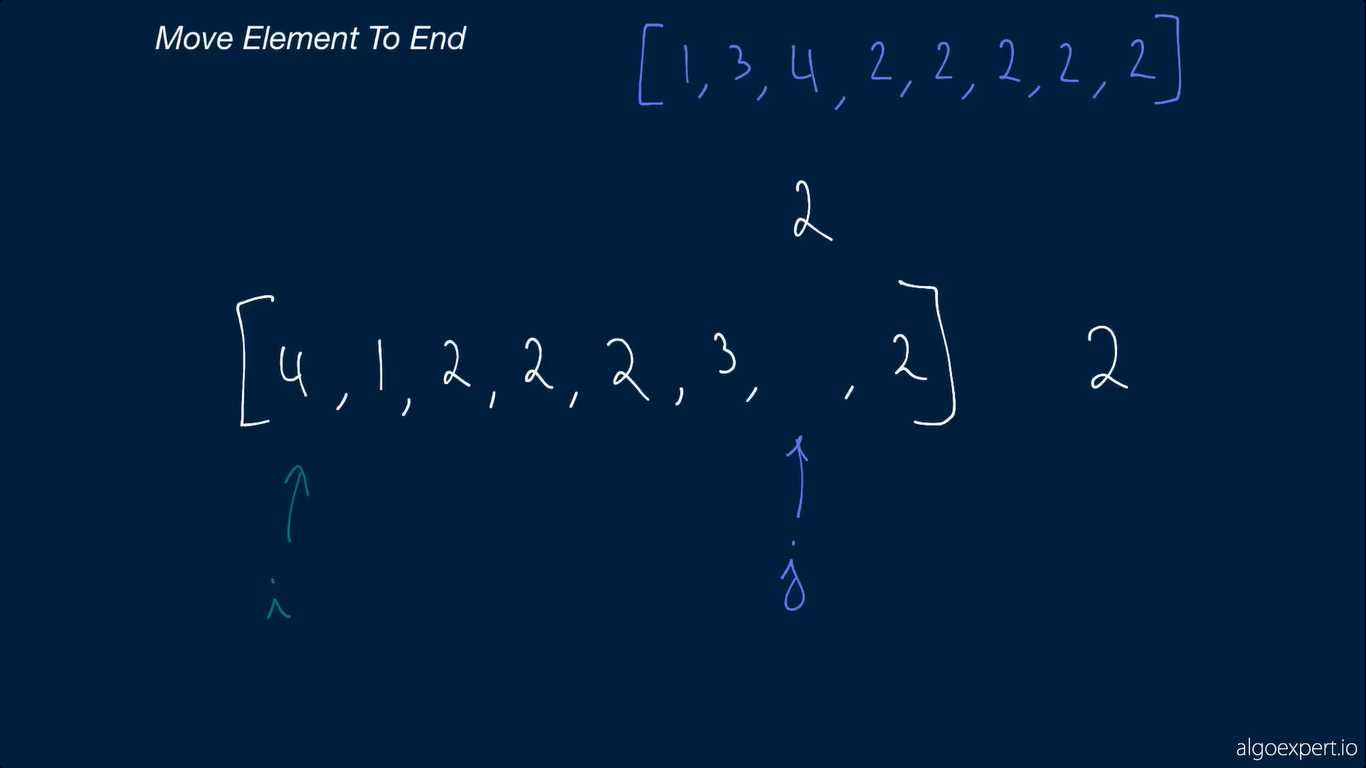 Move Element To End
[1, 3, 4, 2, 2, 2, 2, 2]
2
[4, 1, 2, 2, 2, 3, , 2] 2
i j
algoexpert.io